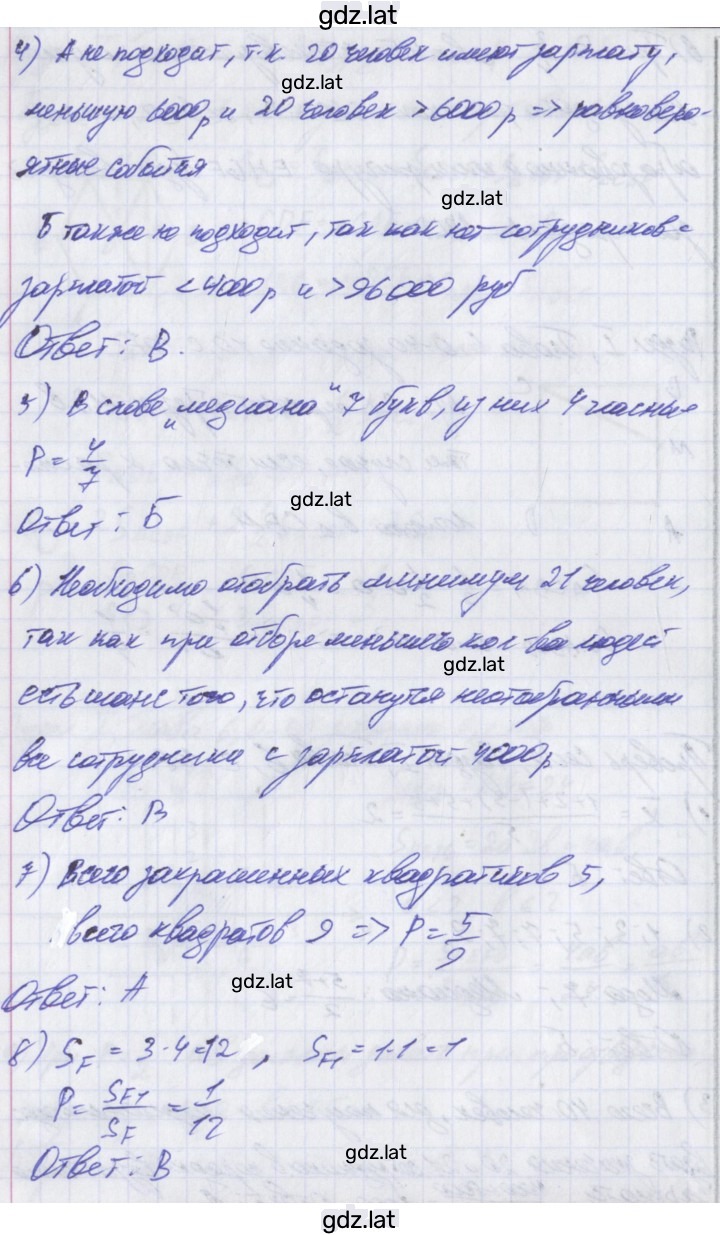 gdz.lat
4) А не подходит, т.к. 20 человек имеют зарплату,
gdz.lat
меньшую 6000р и 20 человек > 6000 р => равноверо-
ятные события
gdz.lat
Б также не подходит, так как нет сотрудников с
зарплатой < 4000 р и > 96000 руб
Ответ: В.
5) В слове „медиана" 7 букв, из них 4 гласные
P = 4/7
gdz.lat
Ответ: Б
6) Необходимо отобрать минимум 21 человек,
так как при отборе меньшего кол-ва людей
gdz.lat
есть шанс того, что останутся неотобранными
все сотрудники с зарплатой 4000р
Ответ: В
7) Всего закрашенных квадратиков 5,
всего квадратов 9 => P = 5/9
gdz.lat
Ответ: А
8) S_F = 3·4=12 , S_F1 = 1·1=1
P = S_F1/S_F = 1/12
gdz.lat
Ответ: В
gdz.lat